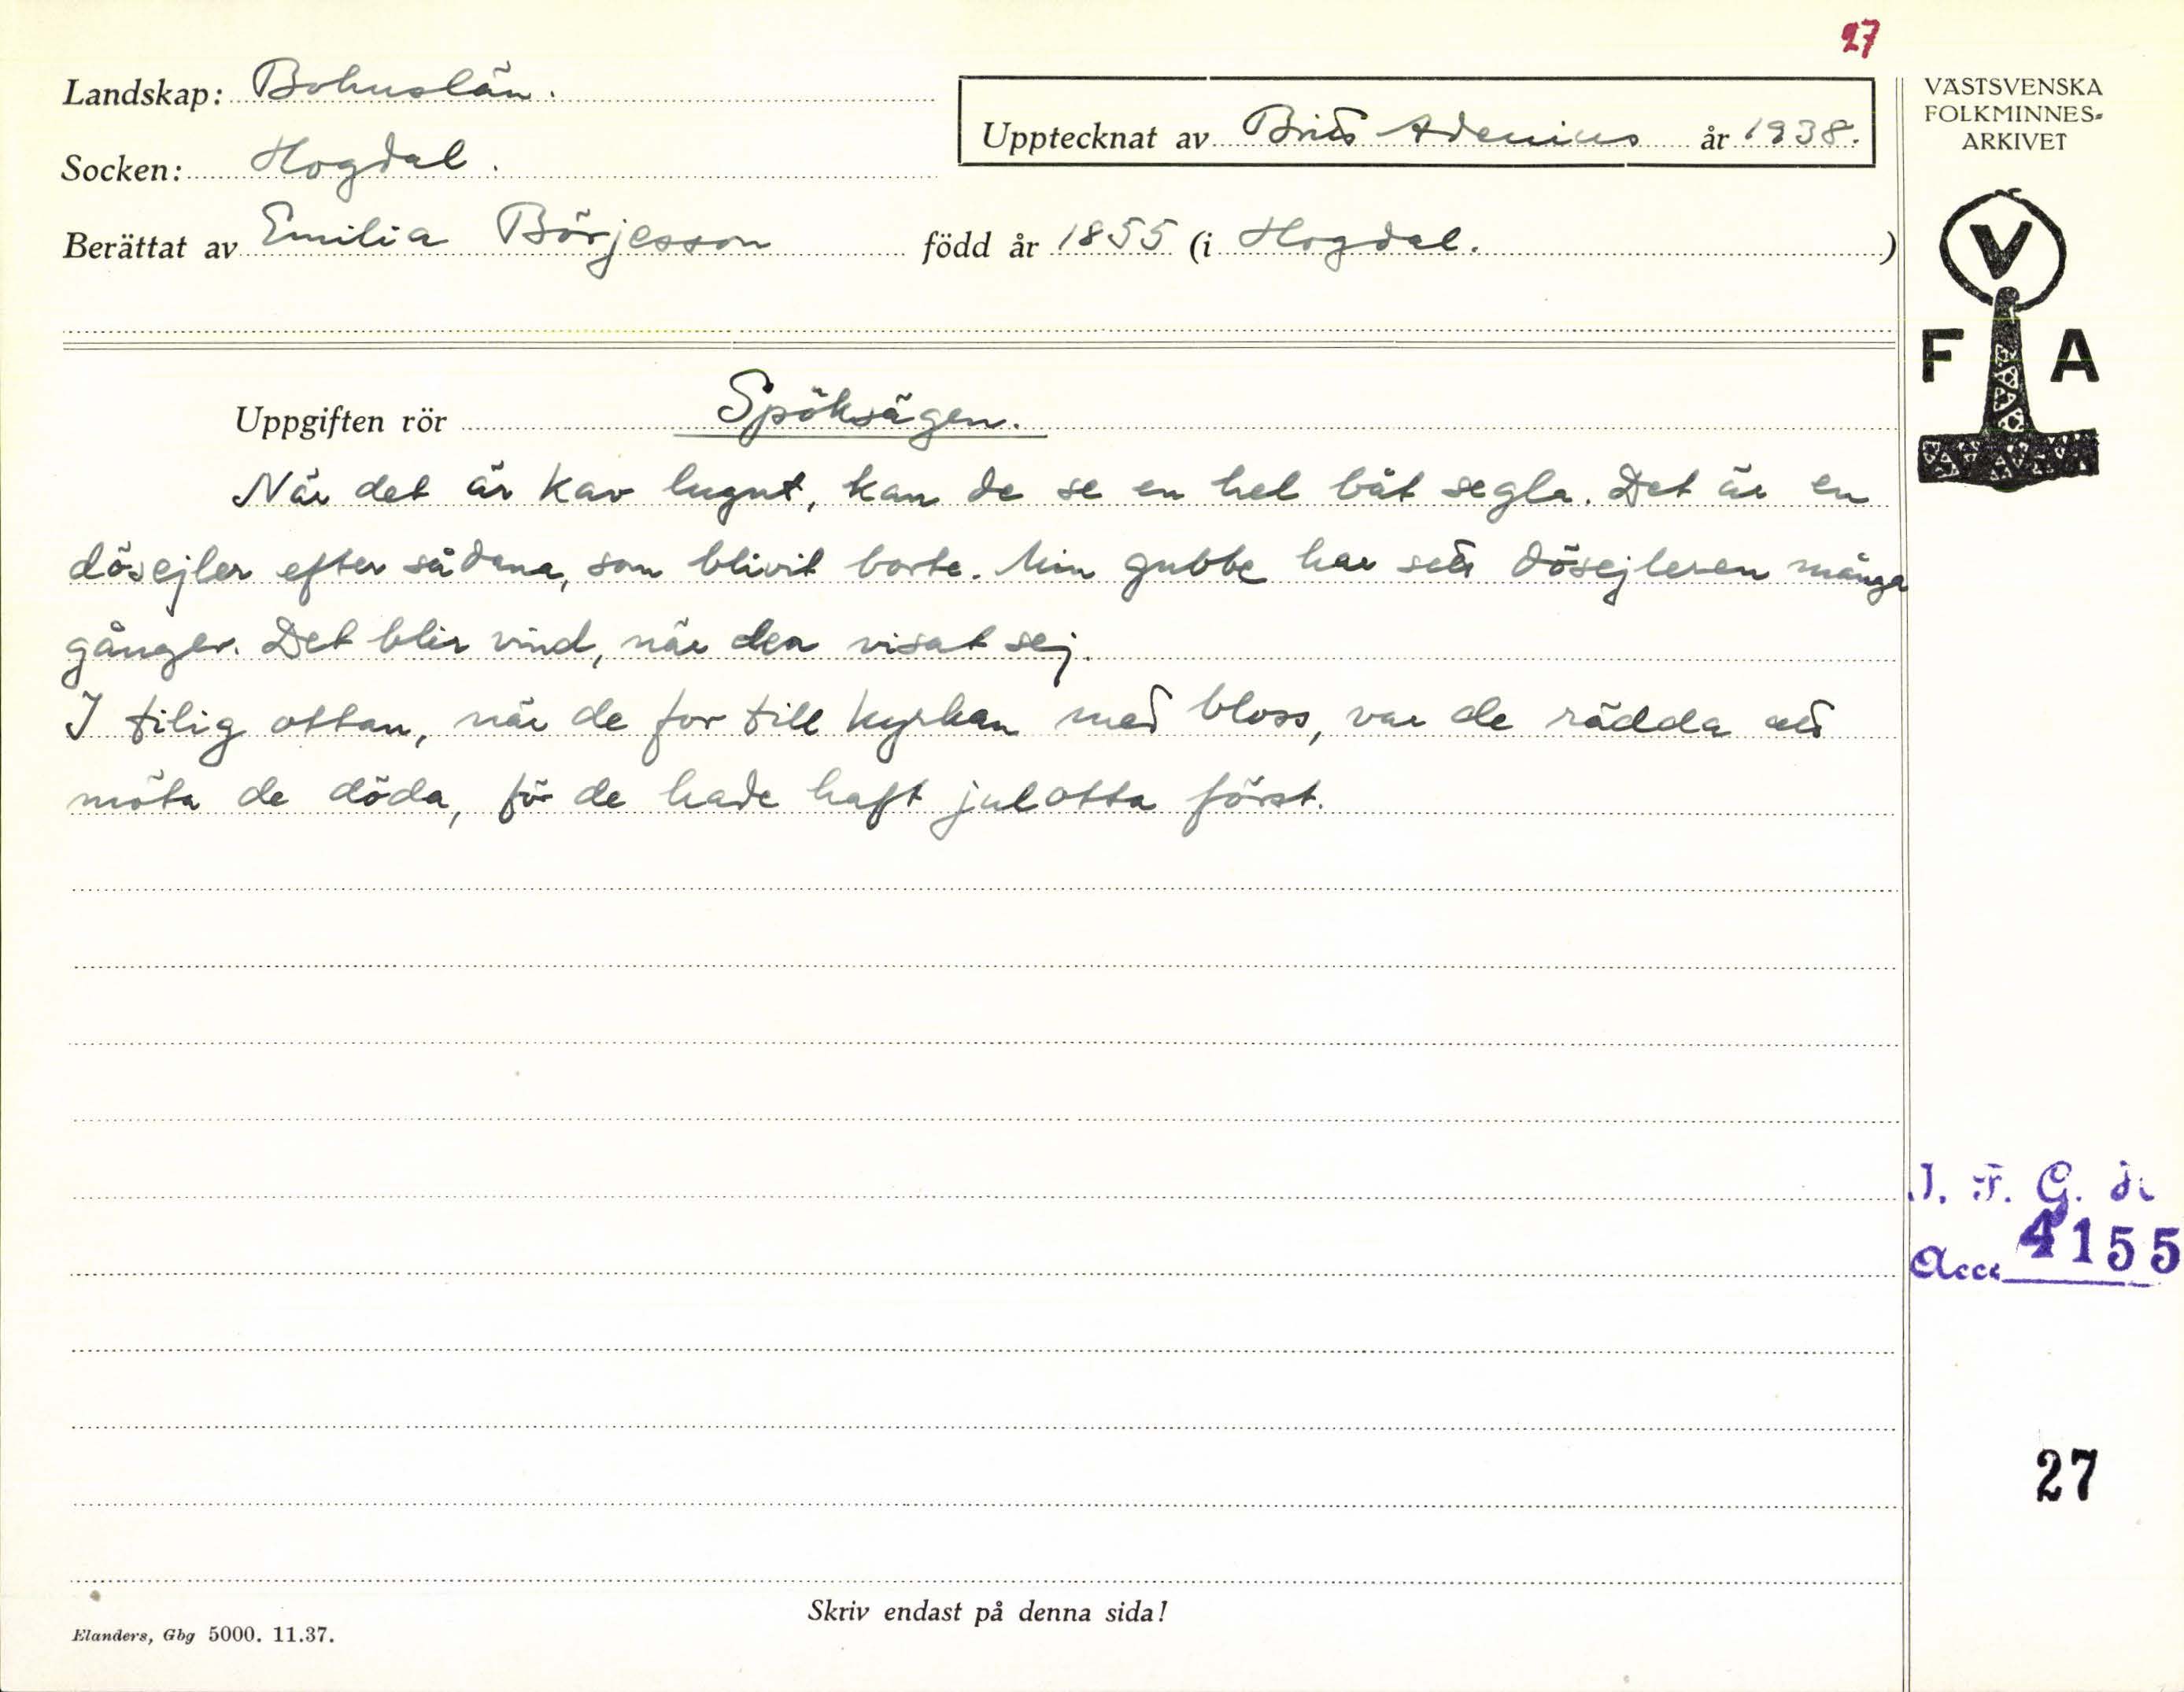 27
Landskap: Bohuslän.
Upptecknat av Britt Adenius år 1938.
Socken: Hogdal.
Berättat av Emilia Börjesson född år 1855 (i Hogdal. )
VÄSTSVENSKA
FOLKMINNES-
ARKIVET
V
F A
Uppgiften rör Spöksägen.
När det är kav lugnt, kan de se en hel båt segla. Det är en
dösejler efter sådana, som blivit borte. Min gubbe har sett dösejleren många
gånger. Det blir vind, når den visat sej.
I tilig ottan, när de for till kyrkan med bloss, var de rädda att
möta de döda, för de hade haft julotta först.
I. F. G. H.
Acc. 4155
27
Skriv endast på denna sida!
Elanders, Gbg 5000. 11.37.